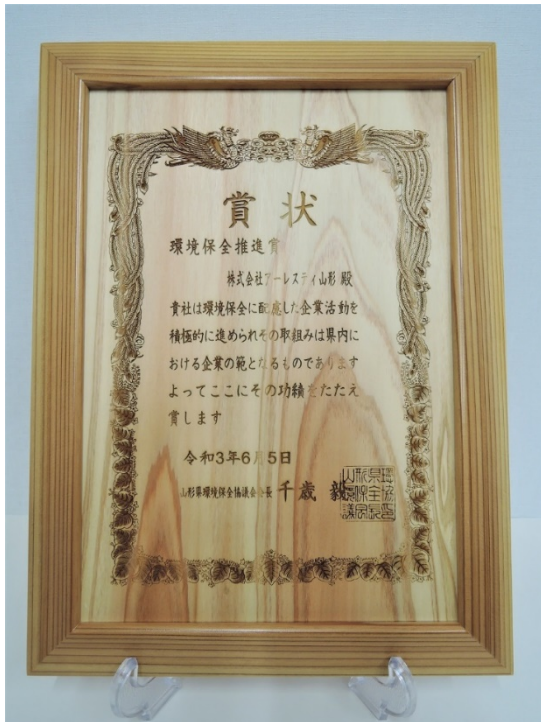 賞状
環境保全推進賞
株式会社アーレスティ山形 殿
貴社は環境保全に配慮した企業活動を
積極的に進められその取組みは県内に
おける企業の範となるものであります
よってここにその功績をたたえ
賞します
令和3年6月5日
山形県環境保全協議会会長 千歳 毅